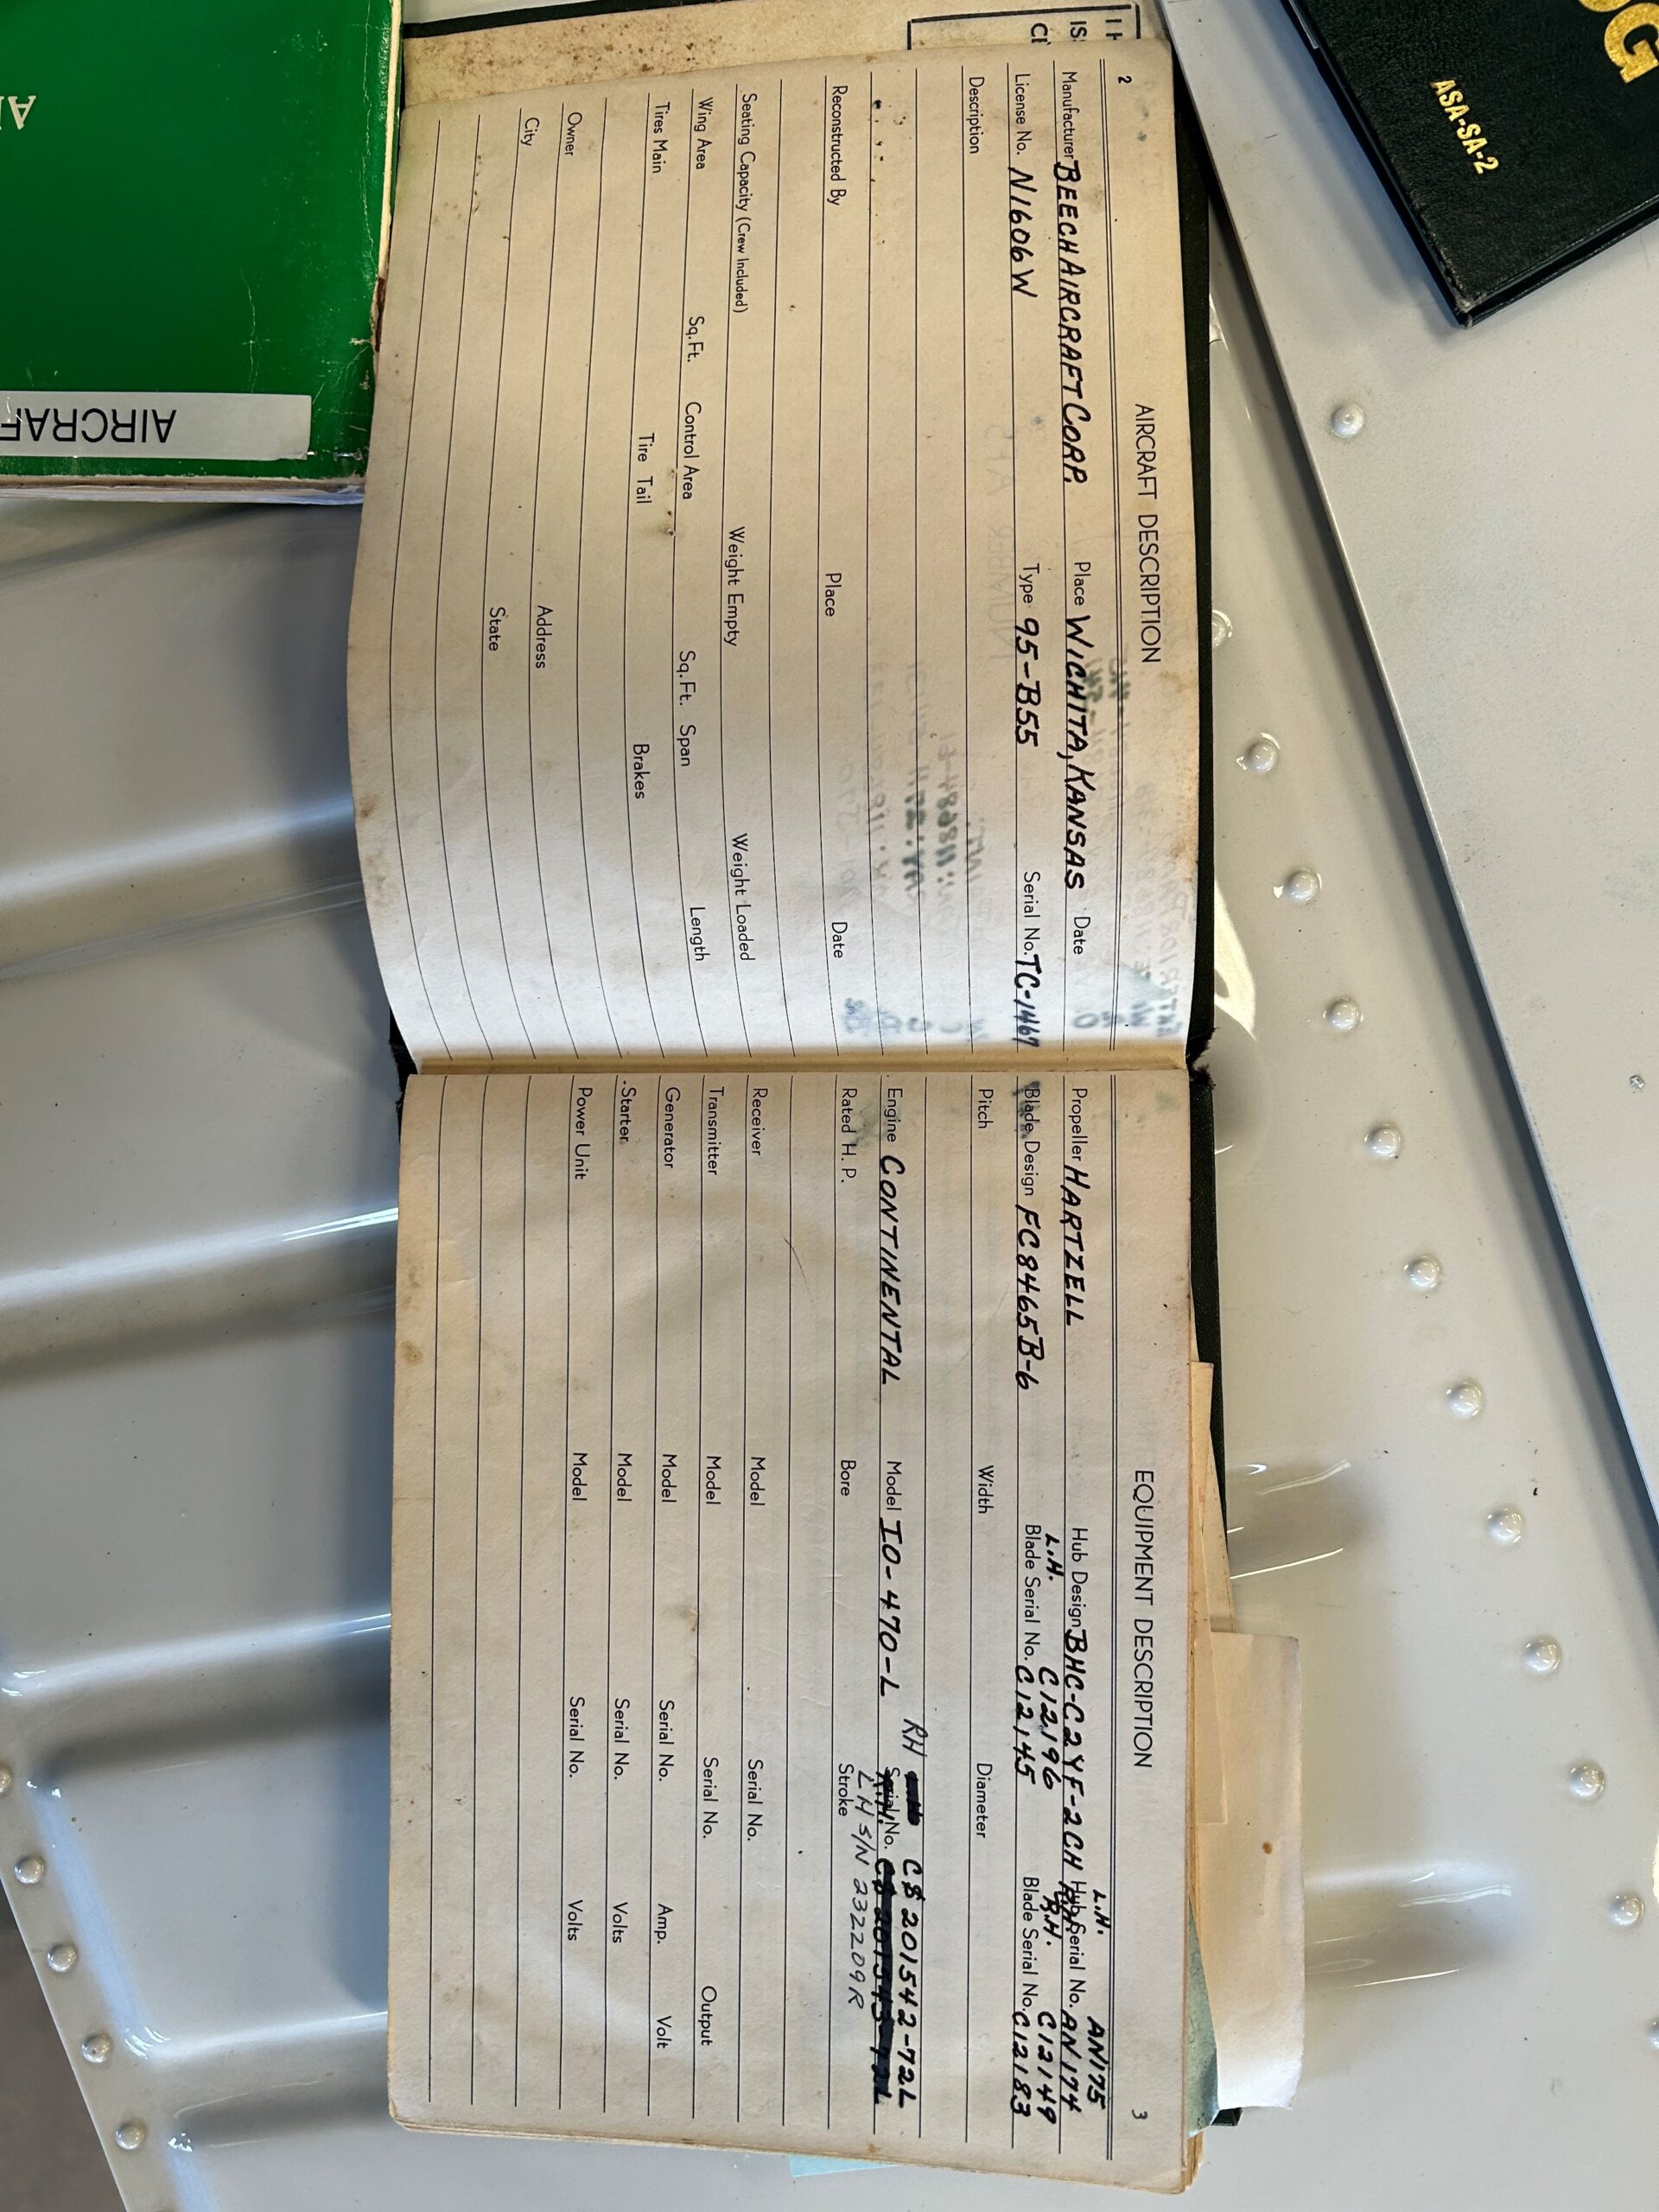 2
AIRCRAFT DESCRIPTION
Manufacturer BEECH AIRCRAFT CORP. Place WICHITA, KANSAS Date
License No. N1606W Type 95-B55 Serial No. TC-1467
Description
Reconstructed By Place Date
Seating Capacity (Crew Included) Weight Empty Weight Loaded
Wing Area Sq.Ft. Control Area Sq.Ft. Span Length
Tires Main Tire Tail Brakes
Owner Address
City State
EQUIPMENT DESCRIPTION
3
L.H. AN175
Propeller HARTZELL Hub Design BHC-C2YF-2CH Hub Serial No. AN174
L.H. C12196 R.H. C12149
Blade Design FC8465B-6 Blade Serial No. C12145 Blade Serial No. C12183
Pitch Width Diameter
RH CS 201542-72L
Engine CONTINENTAL Model IO-470-L Serial No.
LH S/N 232209R
Rated H. P. Bore Stroke
Receiver Model Serial No.
Transmitter Model Serial No. Output
Generator Model Serial No. Amp. Volt
Starter Model Serial No. Volts
Power Unit Model Serial No. Volts
OG
ASA-SA-2
AIRCRAF